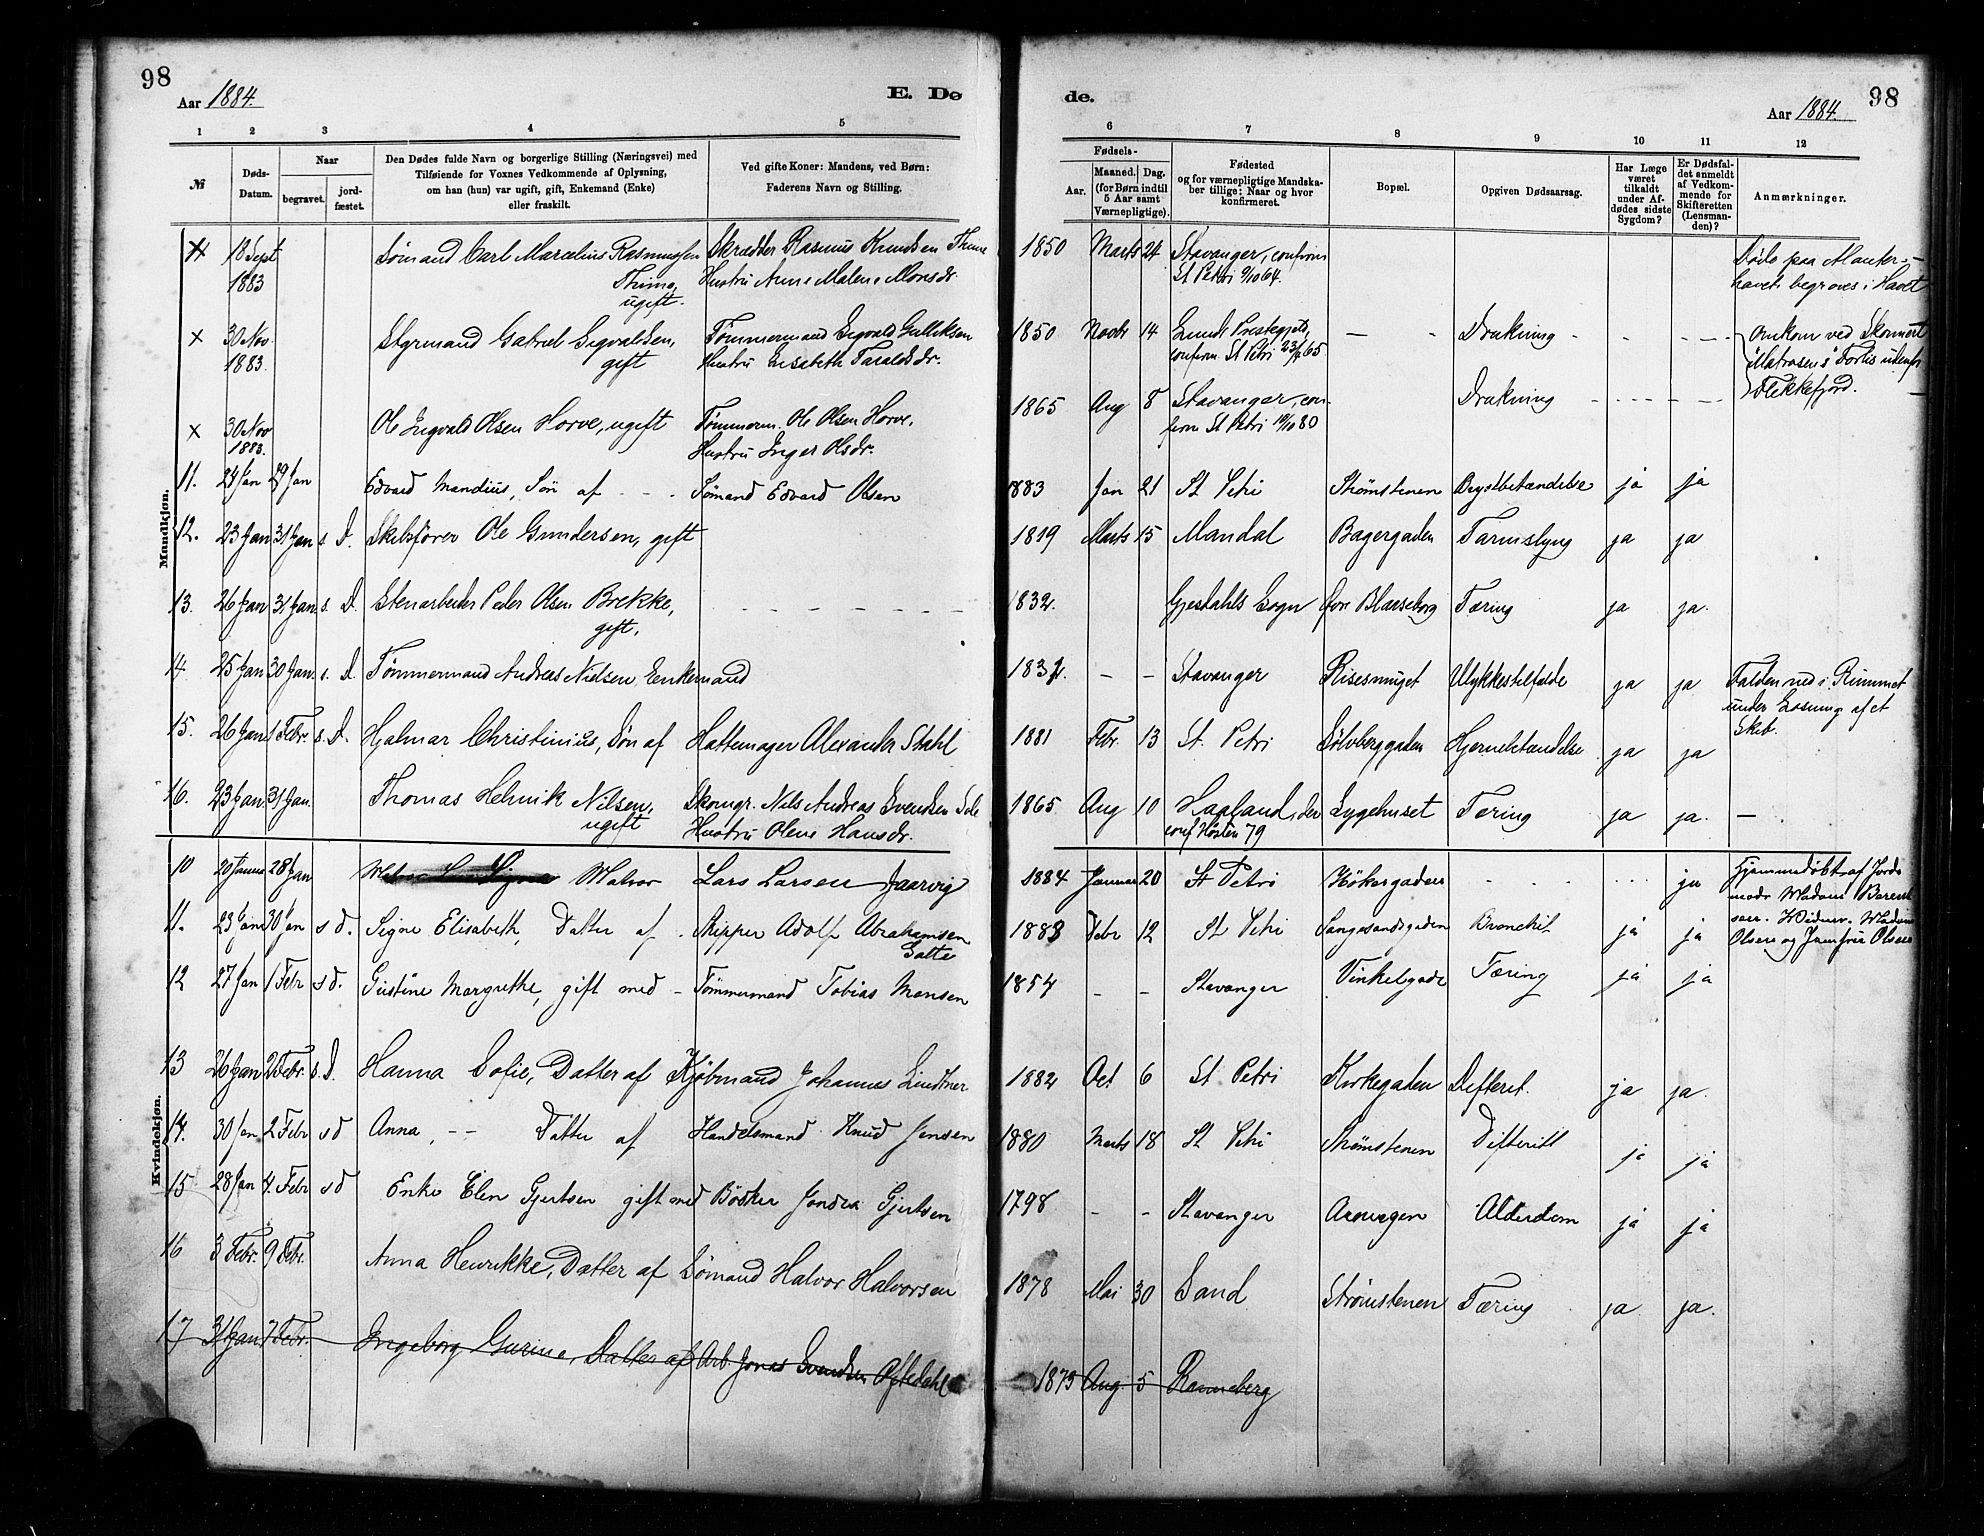 98
Aar 1884.
E. Dø
1 2 3 4 5
№
Døds-
Datum.
Naar
begravet.
jord-
fæstet.
Den Dødes fulde Navn og borgerlige Stilling (Næringsvei) med
Tilføiende for Voxnes Vedkommende af Oplysning,
om han (hun) var ugift, gift, Enkemand (Enke)
eller fraskilt.
Ved gifte Koner: Mandens, ved Børn:
Faderens Navn og Stilling.
Mandkjøn.
18 Sept Sømand Carl Marcelius Rasmussen Skrædder Rasmus Knudsen Thime
1883 Thime, Hustru Anne Malene Monsdr.
ugift.
x 30 Nov Styrmand Gabriel Sigvaldsen, Tømmermand Sigvald Gulliksen
1883. gift Hustru Elisabeth Taraldsdr.
x 30 Nov Ole Ingvald Olsen Horve, ugift Tømmerm. Ole Olsen Horve.
1883. Hustru Inger Olsdr.
11. 24 Jan 29 Jan Edvard Mandius, Søn af - - . Sømand Edvard Olsen
12. 23 Jan 31 Jan s. D. Skibsfører Ole Gundersen, gift
13. 26 Jan 31 Jan. s. D. Stenarbeider Peder Olsen Brekke,
gift.
14 25 Jan 30 Jan. s. D. Tømmermand Andreas Nielsen Enkemand
15. 26 Jan 1 Febr. s. D. Hjalmar Christinius, Søn af Hattemager Alexander Stahl
16. 23 Jan. 31 Jan. Thomas Helmik Nilsen, Skomgr. Nils Andreas Svendsen Sele
ugift Hustru Olene Hansdr.
Kvindekjøn.
10 20 Januar 28 Jan Malvor Lars Larsen Jaarvig
11. 23 Jan 30 Jan s d. Signe Elisabeth, Datter af . Skipper Adolf Abrahamsen
Gatte
12 27 Jan 1 Febr s d. Gustine Margrethe, gift med - Tømmermand Tobias Monsen
13 26 Jan 2 Febr. s. D. Hanna Sofie, Datter af Kjøbmand Johannes Lindtner
14. 30 Jan 2 Febr s d Anna, -- Datter af Handelsmand Knud Jensen
15 28 Jan 4. Febr s d Enke Elen Gjertsen gift med Bödker Gjertsen
16 3 Febr. 9 Febr. Anna Henrikke, Datter af Sømand Halvor Halvorsen
17 31 Jan 7 Febr. Ingeborg Gurine, Datter af Arb. Jonas Svendsen Oftedahl
de.
Aar 1884.
98
6 7 8 9 10 11 12
Fødsels-
Aar.
Maaned. Dag.
(for Børn indtil
5 Aar samt
Værnepligtige).
Fødested
og for værnepligtige Mandska-
ber tillige: Naar og hvor
konfirmeret.
Bopæl.
Opgiven Dødsaarsag.
Har Læge
været
tilkaldt
under Af-
dødes sidste
Sygdom?
Er Dødsfal-
det anmeldt
af Vedkom-
mende for
Skifteretten
(Lensman-
den)?
Anmærkninger.
1850 Marts 24 Stavanger, confirm Døde paa
St Petri 9/10 64. havet, begraves i Havet
1850 Novbr 14 Lunds Prestegjeld, — - Drukning - - - - - Omkom ved Skonnert
confirm St Petri 65 "Matrosens" Forlis udenfor
Flekkefjord.
1865 Aug 8 Stavanger, con- Drukning - - - - -
firm St Petri 80
1883 Jan 21 St Petri Strømstenen Brystbetændelse ja ja
1819 Marts 15 Mandal Bagergaden Tarmslyng ja ja
1832. Gjestahls Sogn Øvre Blaaseborg Tæring ja ja.
- - Stavanger Risesmuget Ulykkestilfælde ja ja Falden ned i Rummet
under Losning af et
Skib.
1881 Febr. 13 St. Petri Sølvberggaden Hjernebetændelse ja ja
1865 Aug 10 Hagland, der Sygehuset Tæring ja ja. —
conf Høsten 79
1884 Januar 20 St Petri Hökergaden - - - - ja Hjemmedøbt af Jorde
moder Madam Berent
sen. Vidner. Madam
Olsen og Jomfru Olsen
1883 Febr 12 St Petri Langesandsgaden Bronchit ja ja
1854 - - Stavanger Vinkelgade Tæring ja ja
1882 Oct 6 St Petri Kirkegaden Difterit. ja ja.
1880 Marts 18 St Petri Strømstenen Difteritt ja ja
1798 - - Stavanger Alderdom ja ja
1878 Mai 30 Sand Strømstenen Tæring ja ja.
1873 Aug. 5 Ranneberg